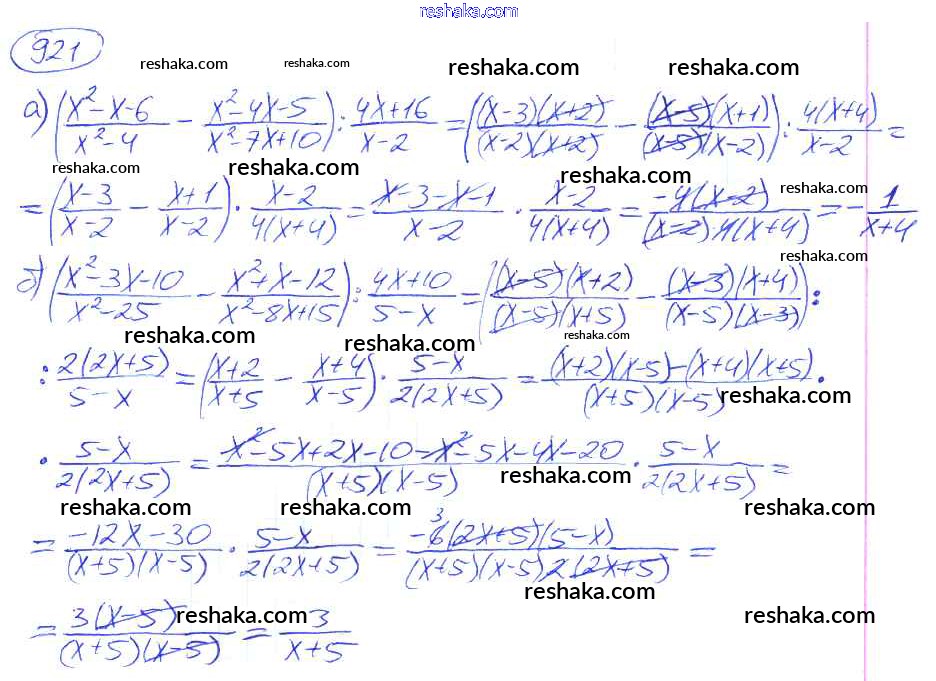 reshaka.com
921
reshaka.com reshaka.com reshaka.com reshaka.com
а) ((x²-x-6)/(x²-4) - (x²-4x-5)/(x²-7x+10)) : (4x+16)/(x-2) = ((x-3)(x+2)/(x-2)(x+2) - (x-5)(x+1)/(x-5)(x-2)) : 4(x+4)/(x-2) =
reshaka.com reshaka.com reshaka.com reshaka.com
= ((x-3)/(x-2) - (x+1)/(x-2)) · (x-2)/4(x+4) = (x-3-x-1)/(x-2) · (x-2)/4(x+4) = -4(x-2)/(x-2)4(x+4) = -1/(x+4)
reshaka.com
б) ((x²-3x-10)/(x²-25) - (x²+x-12)/(x²-8x+15)) : (4x+10)/(5-x) = ((x-5)(x+2)/(x-5)(x+5) - (x-3)(x+4)/(x-5)(x-3)) :
reshaka.com reshaka.com reshaka.com
: 2(2x+5)/(5-x) = ((x+2)/(x+5) - (x+4)/(x-5)) · (5-x)/2(2x+5) = ((x+2)(x-5)-(x+4)(x+5))/(x+5)(x-5) ·
reshaka.com
· (5-x)/2(2x+5) = (x²-5x+2x-10-x²-5x-4x-20)/(x+5)(x-5) · (5-x)/2(2x+5) =
reshaka.com
reshaka.com reshaka.com reshaka.com
= (-12x-30)/(x+5)(x-5) · (5-x)/2(2x+5) = -6(2x+5)(5-x)/(x+5)(x-5)2(2x+5) =
3
reshaka.com
= 3(x-5)/(x+5)(x-5) = 3/(x+5)
reshaka.com reshaka.com